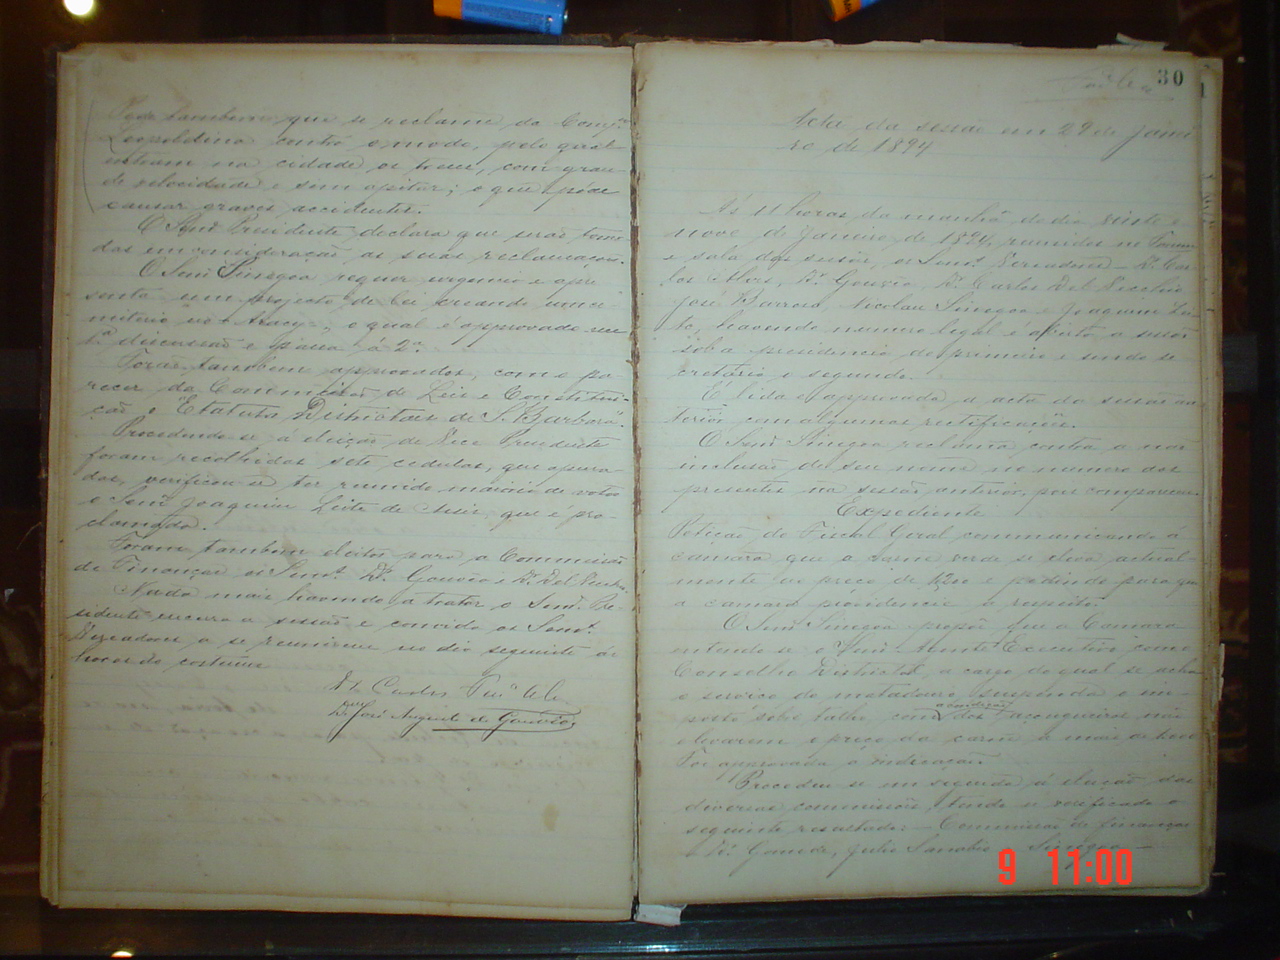 Pede tambem que se reclame da Comp.ª
Leopoldina contra o modo, pelo qual
entram na cidade os trens, com gran
de velocidade e sem apitar; o que póde
causar graves accidentes.
O Senr. Presidente declara que serão toma
das em consideração as suas reclamações.
O Senr. Sinegoa requer urgencia e apre
senta um projecto de Lei creando um ce
miterio no Aracy, o qual é approvado em
1ª discussão e passa á 2ª.
Forão tambem approvados, com o pa
recer da Commissão de Leis e Constitui
ção o Estatuto Districtaes de S. Barbara.
Procedendo-se á eleição de Vice Presidente
foram recolhidas sete cedulas, que apura
das, verificou-se ter reunido maioria de votos
o Senr. Joaquim Leite de Assis, que é pro
clamado.
Foram tambem eleitos para a Commissão
de Finanças os Senrs. Dr. Gouvêa e Dr. Del Vecchio.
Nada mais havendo a tratar o Senr. Pre
sidente encerra a sessão e convida os Senrs.
Vereadores a se reunirem no dia seguinte ás
horas do costume
Dr. José Augusto de Gouvêa
30
Acta da sessão em 29 de Janei
ro de 1894
Ás 11 horas da manhã do dia vinte e
nove de Janeiro de 1894, reunidos no
e sala das sessões, os Senrs. Vereadores – Dr. Car
los Alves, Dr. Gouvêa, Dr. Carlos Del Vecchio
José Barroso, Nicolau Sinegoa e Joaquim Lei
te, havendo numero legal é aberta a sessão
sob a presidencia do primeiro e sendo se
cretario o segundo.
É lida e approvada a acta da sessão an
terior com algumas rectificações.
O Senr. Sinegoa reclama contra a não
inclusão de seu nome no numero dos
presentes na sessão anterior, pois compareceu.
Expediente
Petição do Fiscal Geral communicando á
camara que a carne verde se eleva actual
mente ao preço de 1200 e pedindo para que
a camara providencie a respeito.
O Senr. Sinegoa propõe que a Camara
entenda-se o Senr. Agente Executivo com o
Conselho Districtal, a cargo do qual se acha
o serviço do matadouro suspenda o im
posto sobre talho, com a condição dos açougueiros não
elevarem o preço da carne a mais de
Foi approvada a indicação.
Procedeu-se em seguida á eleição das
diversas commissões, tendo-se verificado o
seguinte resultado: – Commissão de finanças
o Dr. Gouvêa, Julio Sinegoa –
9 11:00